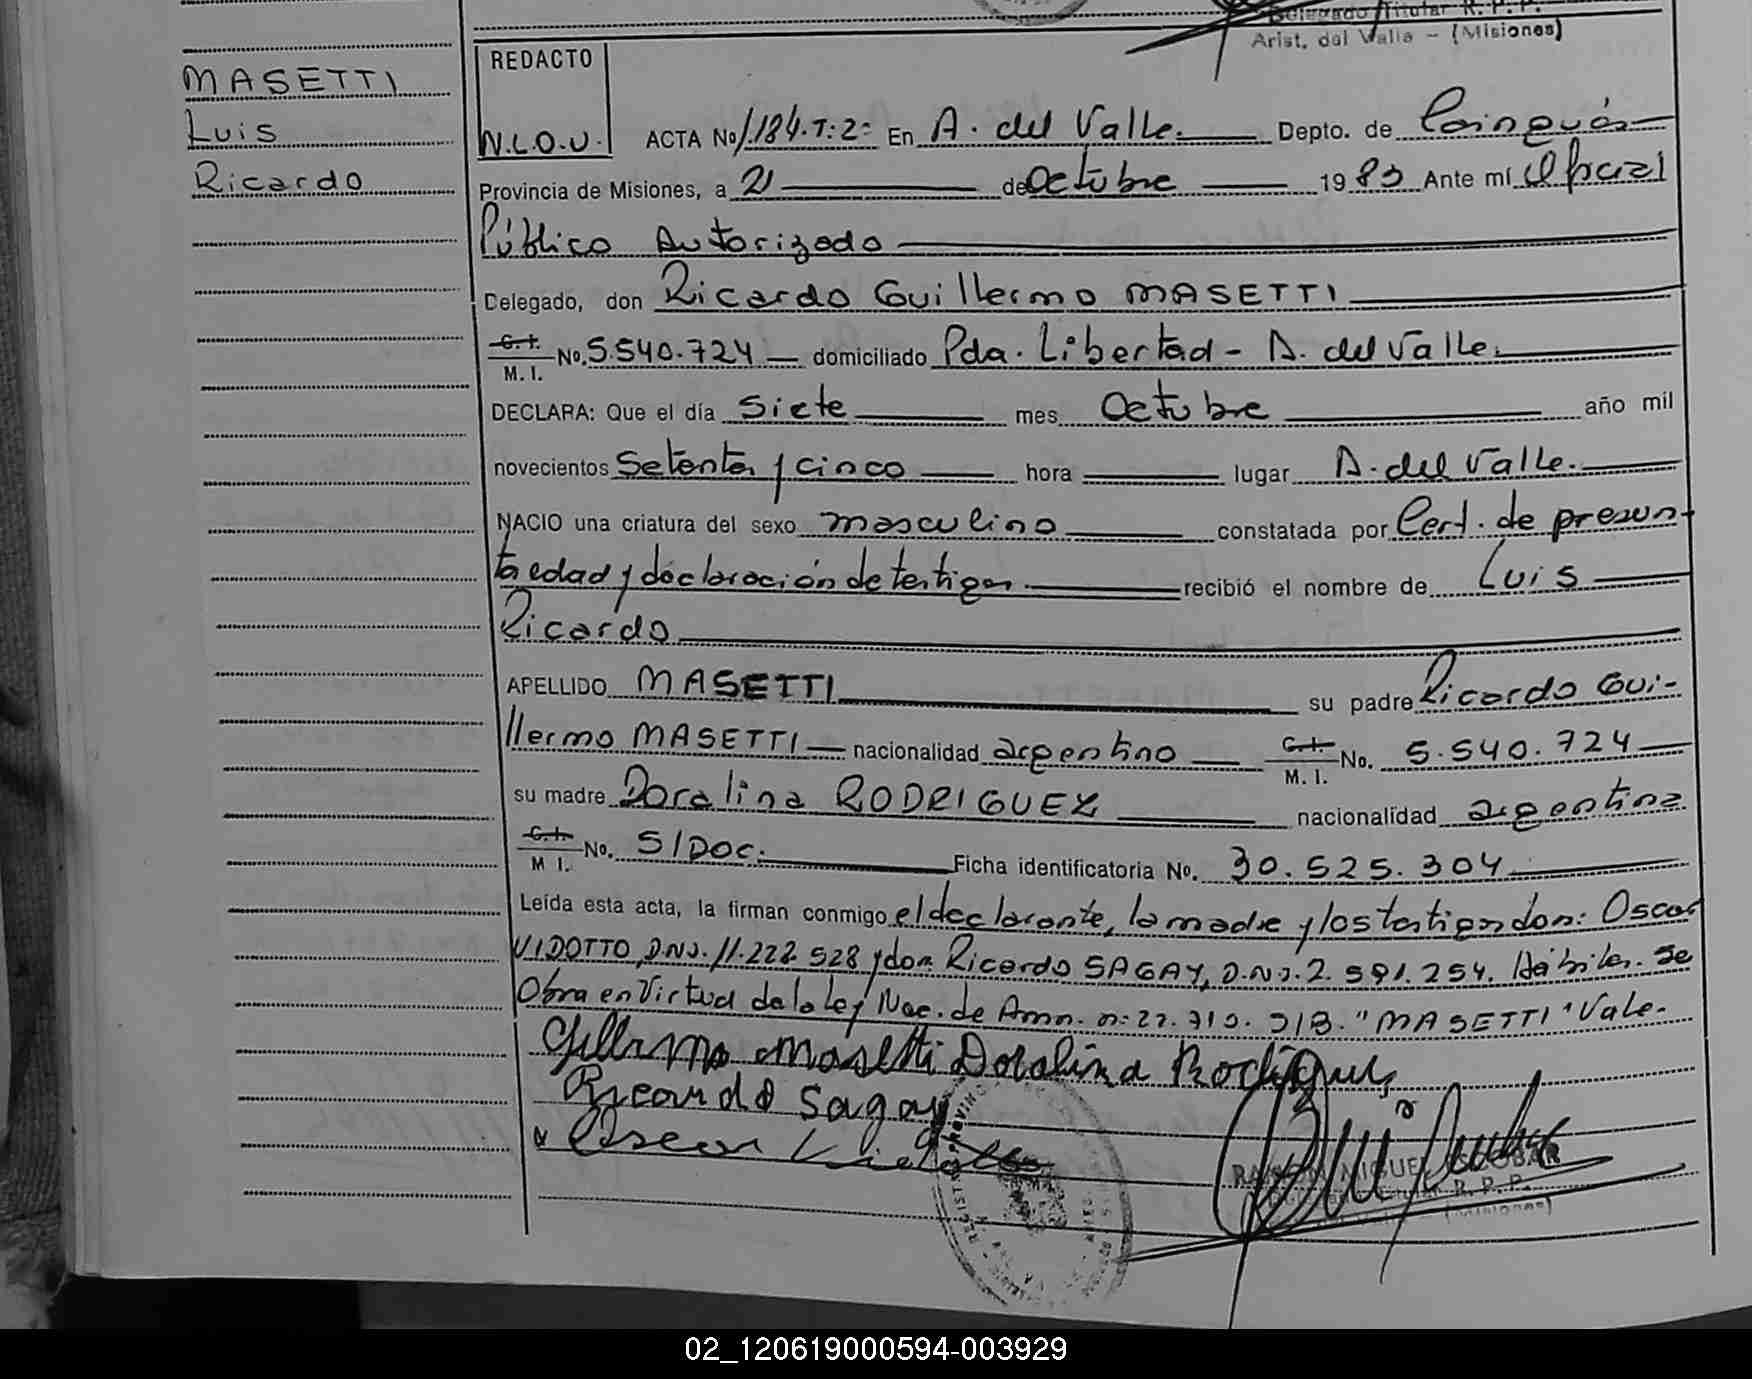 Delegado Titular R. P. P.
Arist. del Valle - (Misiones)
MASETTI
Luis
Ricardo
REDACTO
N.L.O.U.
ACTA No 1.184.T:2- En A. del Valle. Depto. de Cainguás
Provincia de Misiones, a 21 de Octubre 1983 Ante mí Oficial
Público Autorizado
Delegado, don Ricardo Guillermo MASETTI
C.I.
M. I. No. 5.540.724 domiciliado Pda. Libertad - A. del Valle.
DECLARA: Que el día Siete mes Octubre año mil
novecientos Setenta y cinco hora lugar A. del Valle.
NACIO una criatura del sexo masculino constatada por Cert. de presun-
ta edad y declaración de testigos recibió el nombre de Luis
Ricardo
APELLIDO MASETTI su padre Ricardo Gui-
llermo MASETTI nacionalidad argentino C.I. M. I. No. 5.540.724
su madre Doralina RODRIGUEZ nacionalidad argentina
C.I. M I. No. S/DOC. Ficha identificatoria No. 30.525.304
Leída esta acta, la firman conmigo el declarante, la madre y los testigos don: Oscar
VIDOTTO, D.N.I. 11.222.528 y don Ricardo SAGAY, D.N.I. 2.591.254. Hábiles. Se
Obra en Virtud de la Ley Nac. de Amn. n: 22.710. S/B. "MASETTI" Vale.
Gillermo Masetti Doralina Rodrigues
Ricardo Sagay
Oscar Vidotto
RAMON MIGUEL ESCOBAR
Delegado Titular R. P. P.
(Misiones)
02_120619000594-003929